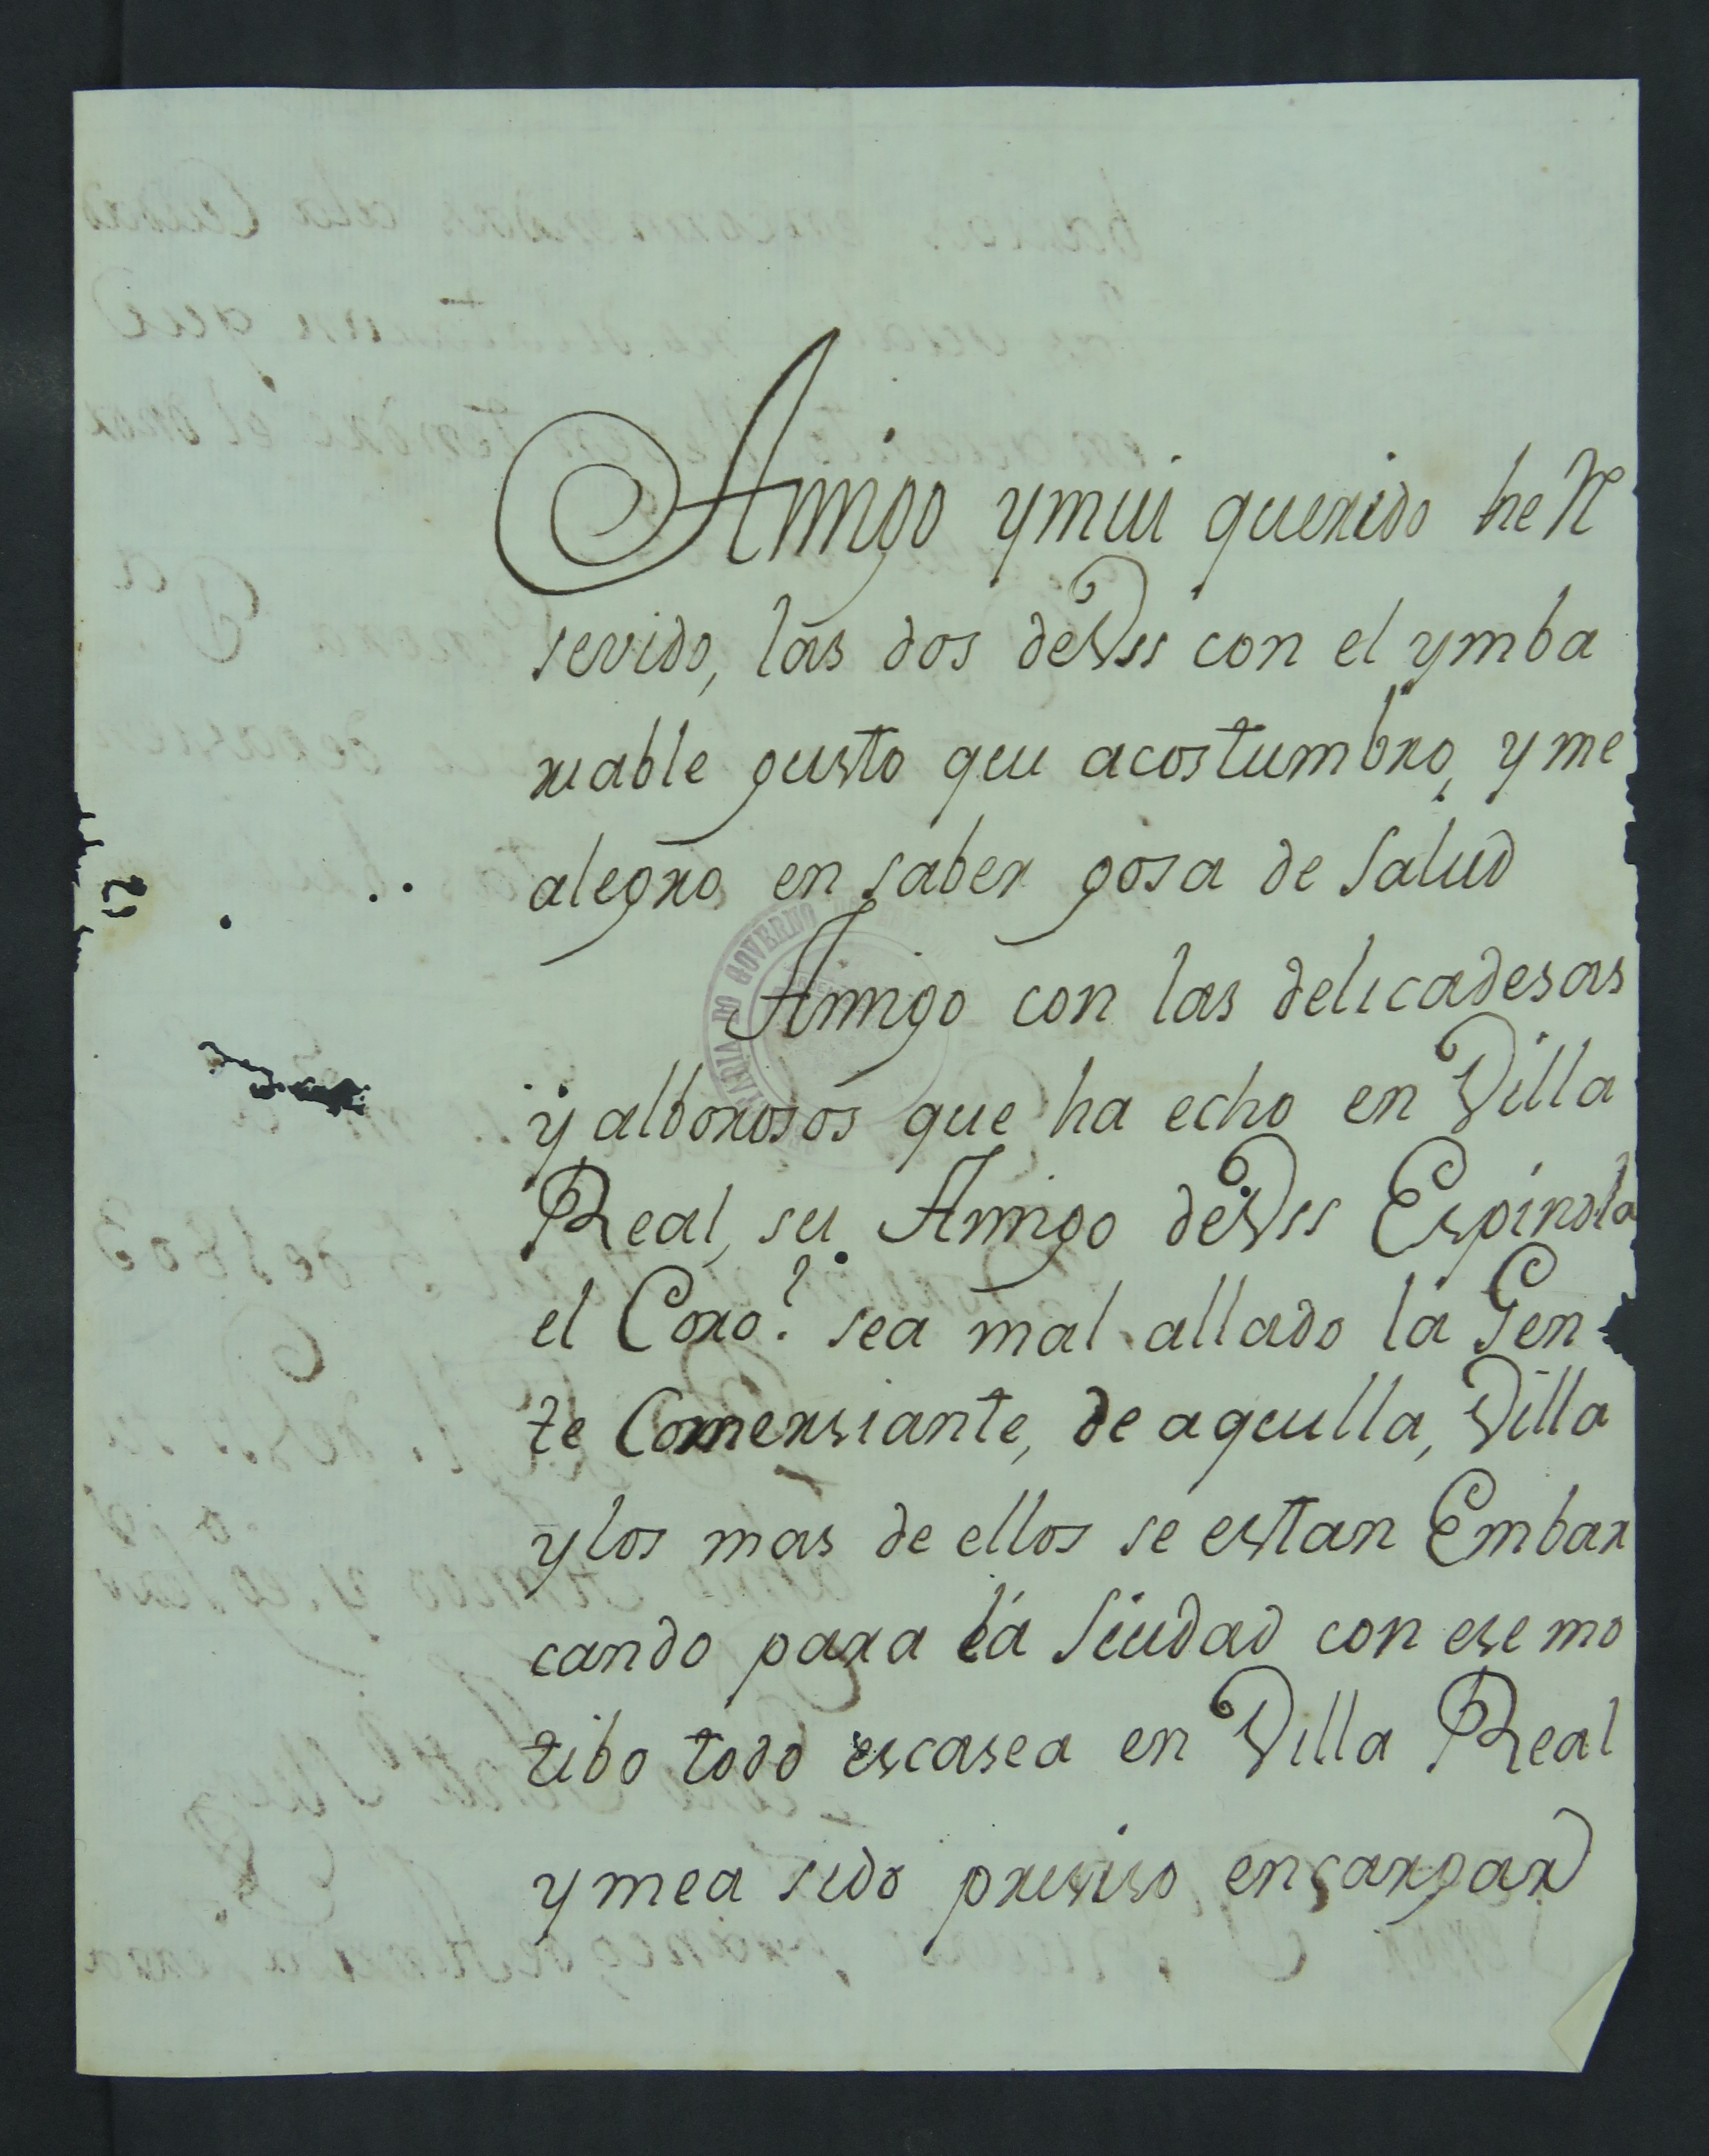 Amigo ymui querido he R
sevido, las dos deVss con el ymba
riable gusto qui acostumbro, y me
alegro en saber gosa de Salud
Amigo con las delicadesas
y alborosos que ha echo en Villa
Real, su Amigo deVss Espindola
el Coro.l sea mal allado la Gen
te Comersiante, de aquilla, Villa
ylos mas de ellos se estan Embar
cando para la Siudad con ese mo
tibo todo escasea en Villa Real
ymea sido presiso encargar
GOVERNO